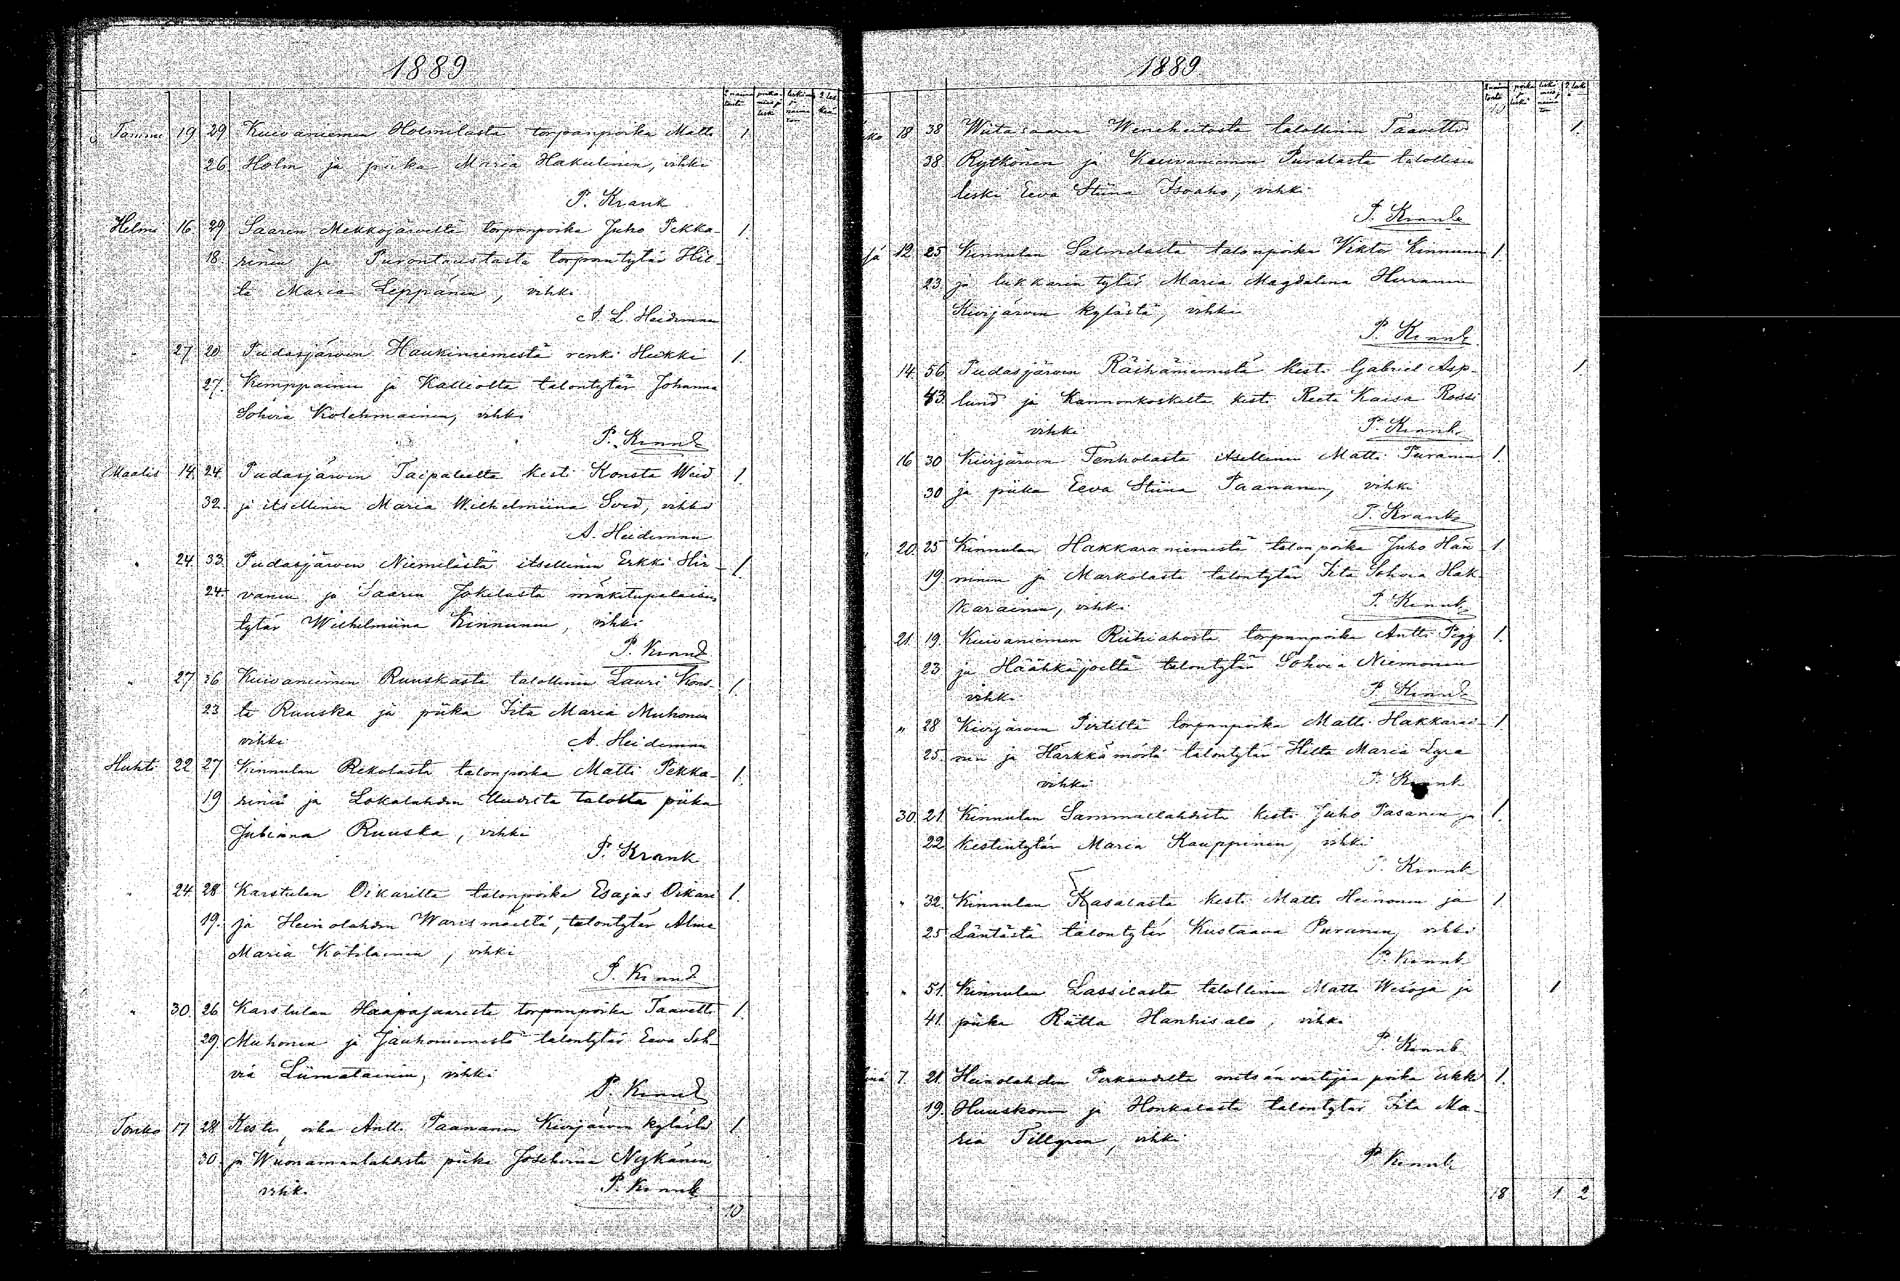 1889
2 naim
Tammi 19 29 Kuivaniemen Holmilasta torpanpoika Matti 1
26 Holm ja piika Maria Hakulinen, vihki
P. Krank
Helmi 16. 29 Saaren Mekkojärveltä torpanpoika Juho Pekka- 1.
18. rinen ja Purontaustasta torpantytär Hil-
ta Maria Leppänen, vihki
A. L. Heideman
" 27 20 Pudasjärven Haukiniemestä renki Heikki 1.
27. Kemppainen ja Kalliolta talontytär Johanna
Sohvia Kolehmainen, vihki
P. Krank
Maalis 14. 24. Pudasjärven Taipaleelta kesti Konsta Weid 1
32. ja itsellinen Maria Wilhelmiina Sved, vihki
A. Heideman
" 24. 33. Pudasjärven Niemilästä itsellinen Erkki Hir- 1.
24. vanen ja Saaren Jokelasta mäkitupalaisen
tytär Wilhelmiina Kinnunen, vihki
P. Krank
" 27 26 Kuivaniemen Ruuskasta talollinen Lauri Kons- 1.
23 ta Ruuska ja piika Iita Maria Muhonen
vihki A. Heideman
Huhti 22 27 Kinnulan Rekolasta talonpoika Matti Pekka- 1.
19 rinen ja Lokalahden Uudelta talolta piika
Juliana Ruuska, vihki
P. Krank
" 24 28 Karstulan Oikarilta talonpoika Esajas Oikari 1.
19. ja Heinolahden Warismäeltä, talontytär Alma
Maria Kotilainen, vihki
P. Krank
" 30. 26 Karstulan Haapasaaresta torpanpoika Taavetti 1.
29. Muhonen ja Jauhoniemestä talontytär Eeva Soh-
via Liimatainen, vihki
P. Krank
Touko 17 28 Kestin poika Antti Paananen Kivijärven kylästä 1
30. ja Wuonamanlahdesta piika Josehvina Nykänen
vihki P. Krank
10
1889
18 38 Wiitasaaren Wenehetosta talollinen Taavetti 1.
38 Rytkönen ja Kuivaniemen Puralasta talollisen
leski Eeva Stiina Isoaho, vihki
P. Krank
12. 25 Kinnulan Salmelasta talonpoika Viktor Kinnunen 1.
23 ja lukkarin tytär Maria Magdalena Herranen
Kivijärven kylästä, vihki
P. Krank
14. 56 Pudasjärven Räihäniemestä kesti Gabriel Asp- 1.
43. lund ja Kannonkoskelta kesti Reeta Kaisa Rossi
vihki P. Krank
16 30 Kivijärven Tenholasta itsellinen Matti Puranen 1.
30 ja piika Eeva Stiina Paananen, vihki
P. Krank
20. 25 Kinnulan Hakkaraniemestä talonpoika Juho Hän- 1.
19 ninen ja Markolasta talontytär Iita Sohvia Hak-
karainen, vihki P. Krank
21. 19. Kuivaniemen Riihiahosta torpanpoika Antti Pigg 1.
23 ja Häähkäjoelta talontytär Sohvia Niemonen
vihki P. Krank
" 28 Kivijärven Pirtiltä torpanpoika Matti Hakkarai- 1
25. nen ja Härkkämöstä talontytär Hilta Maria Lyra
vihki P. Krank
30. 21. Kinnulan Sammallahdesta kesti Juho Pasanen ja 1.
22 kestintytär Maria Kauppinen, vihki
P. Krank
" 32. Kinnulan Kasalasta kesti Matti Heinonen ja 1
25 Läntästä talontytär Kustaava Puranen, vihki
P. Krank
" 51. Kinnulan Lassilasta talollinen Matti Wesoja ja 1
41. piika Riitta Hanhisalo, vihki
P. Krank
7. 21. Heinolahden Porkaudelta metsänvartijan poika Erkki 1.
19. Huuskonen ja Honkalasta talontytär Iita Ma-
ria Tillgren, vihki
P. Krank
18 1 2